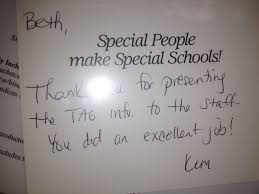 Beth,
Special People
make Special Schools!
Thank you for presenting
the TAG info. to the staff.
You did an excellent job!
Kim